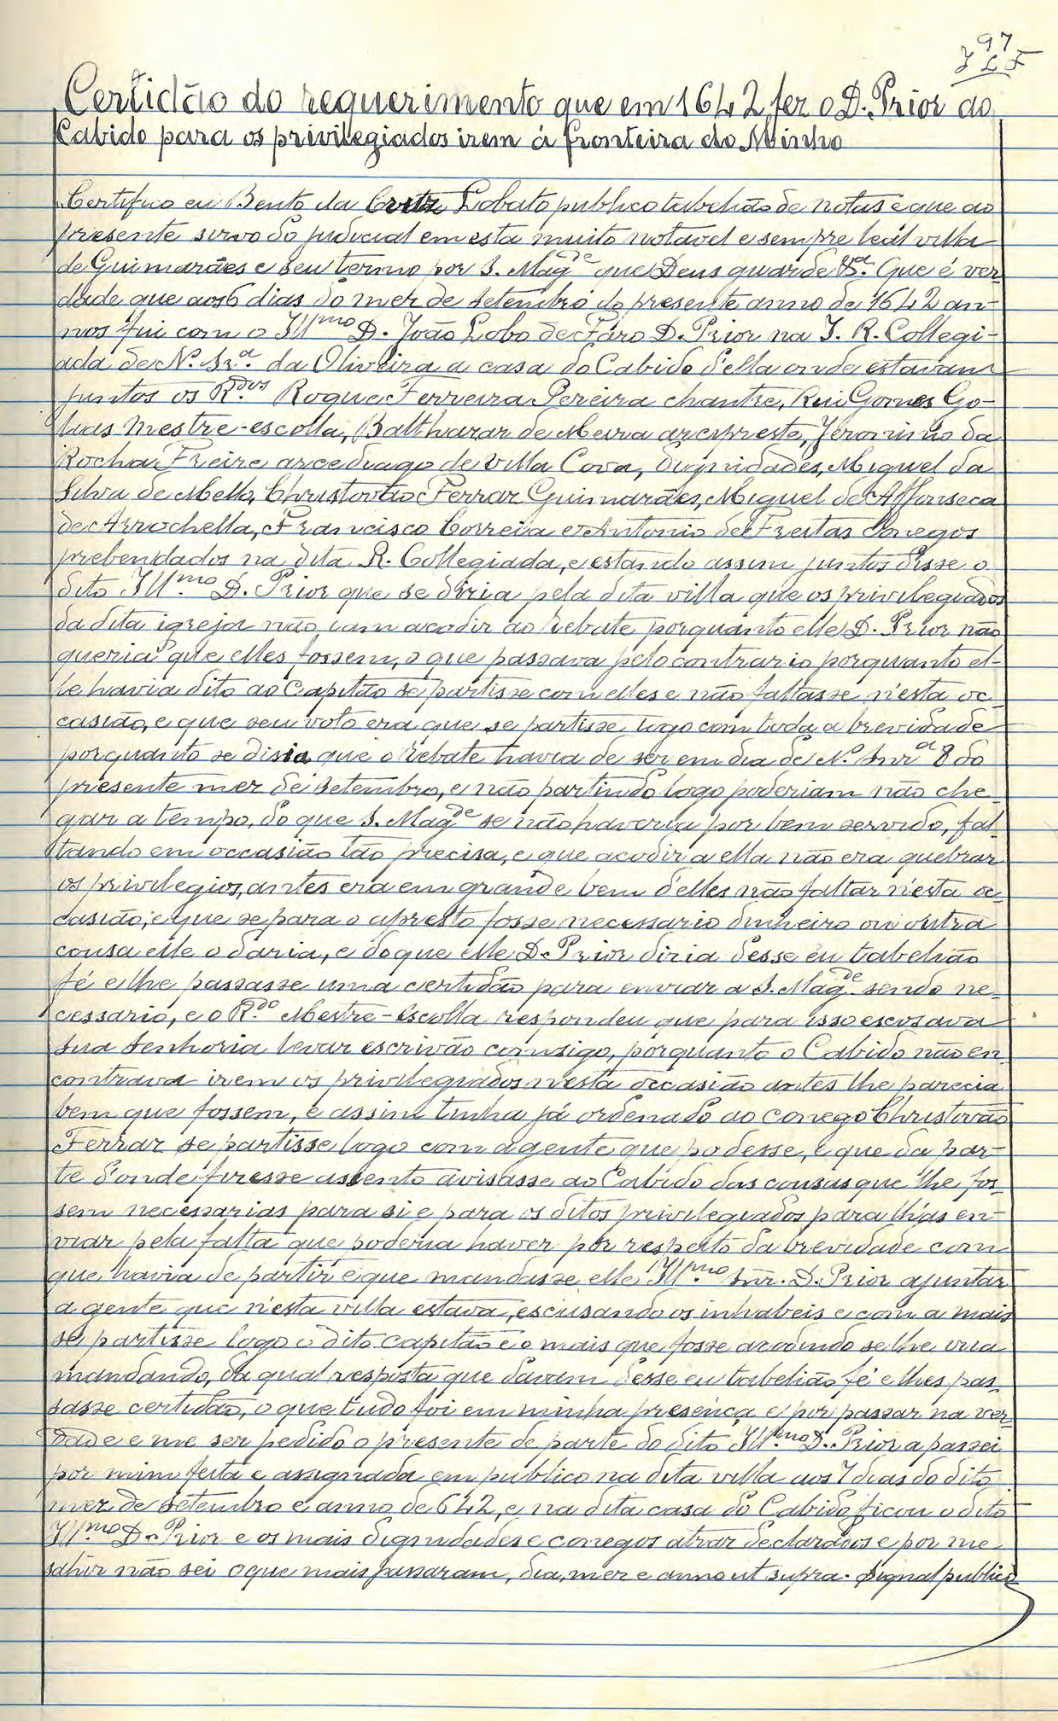 97
J L F
Certidão do requerimento que em 1642 fez o D. Prior ao
Cabido para os privilegiados irem á fronteira do Minho
Certifico eu Bento da Cruz Lobato publico tabelião de notas e que ao
presente sirvo do judicial em esta muito notavel e sempre leal villa
de Guimarães e seu termo por S. Magde que Deus guarde &a. Que é ver-
dade que aos 6 dias do mez de setembro do presente anno de 1642 an-
nos fui com o Illmo D. João Lobo de Faro D. Prior na I. R. Collegi-
ada de N. Sra da Oliveira a casa do Cabido d'ella onde estavam
juntos os Rdos Roque Ferreira Pereira chantre, Rui Gomes Go-
lias mestre-escolla, Balthazar de Meira arcipreste, Jeronimo da
Rocha Freire arcediago de Villa Cova, dignidades, Miguel da
Silva de Mello, Christovão Ferraz Guimarães, Miguel de Affonseca
de Arrochella, Francisco Correia e Antonio de Freitas conegos
prebendados na dita R. Collegiada, e estando assim juntos disse o
dito Illmo D. Prior que se diria pela dita villa que os privilegiados
da dita igreja não iam acodir ao rebate porquanto elle D. Prior não
queria que elles fossem, o que passava pelo contrario porquanto el-
le havia dito ao Capitão se partisse com elles e não faltasse n'esta oc-
casião, e que seu voto era que se partisse logo com toda a brevidade
porquanto se disia que o rebate havia de ser em dia de N. Snra 8 do
presente mez de setembro, e não partindo logo poderiam não che-
gar a tempo, do que S. Magde se não haveria por bem servido, fal-
tando em occasião tão precisa, e que acodir a ella não era quebrar
os privilegios, antes era em grande bem d'elles não faltar n'esta oc-
casião, e que se para o apresto fosse necessario dinheiro ou outra
cousa elle o daria, e do que elle D. Prior diria désse eu tabelião
fé e lhe passasse uma certidão para enviar a S. Magde sendo ne-
cessario, e o Rdo Mestre-Escolla respondeu que para isso escosava
Sua Senhoria levar escrivão comsigo, porquanto o Cabido não en-
contrava irem os privilegiados n'esta occasião antes lhe parecia
bem que fossem, e assim tinha já ordenado ao conego Christovão
Ferraz se partisse logo com a gente que podesse, e que da par-
te d'onde fizesse assento avisasse ao Cabido das cousas que lhe fos-
sem necessarias para si e para os ditos privilegiados para lh'as en-
viar pela falta que poderia haver por respeito da brevidade com
que havia de partir e que mandasse elle Illmo Snr. D. Prior ajuntar
a gente que n'esta villa estava, escusando os inhabeis e com a mais
se partisse logo o dito capitão e o mais que fosse acodindo se lhe iria
mandando, da qual resposta que davam désse eu tabelião fé e lhes pas-
sasse certidão, o que tudo foi em minha presença e por passar na ver-
dade e me ser pedido o presente de parte do dito Illmo D. Prior a passei
por mim feita e assignada em publico na dita villa aos 7 dias do dito
mez de setembro e anno de 642, e na dita casa do Cabido ficou o dito
Illmo D. Prior e os mais dignidades e conegos atraz declarados e por me
sahir não sei o que mais passaram, dia, mez e anno ut supra. Signal publico